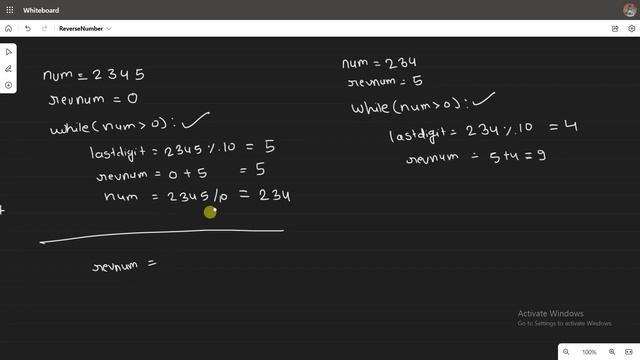 Whiteboard
ReverseNumber
num = 2345
revnum = 0
while(num>0):
lastdigit = 2345 % 10 = 5
revnum = 0 + 5 = 5
num = 2345/10 = 234
revnum =
num = 234
revnum = 5
while(num>0):
lastdigit = 234 % 10 = 4
revnum = 5+4 = 9
Activate Windows
Go to Settings to activate Windows.
100%